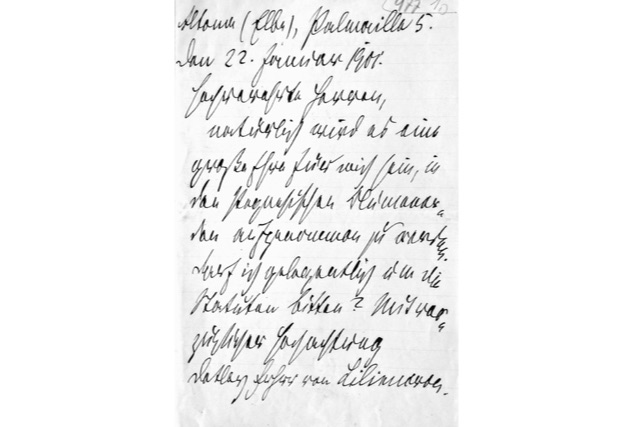 Altona (Elbe), Palmaille 5.
den 22. Januar 1901.
Hochverehrte Herren,
natürlich wird es eine
große Ehre für mich sein, in
den Pegnesischen Blumenor-
den aufgenommen zu werden.
Darf ich gelegentlich um die
Statuten bitten? Mit vor-
züglicher Hochachtung
Detlev Frhr von Liliencron.